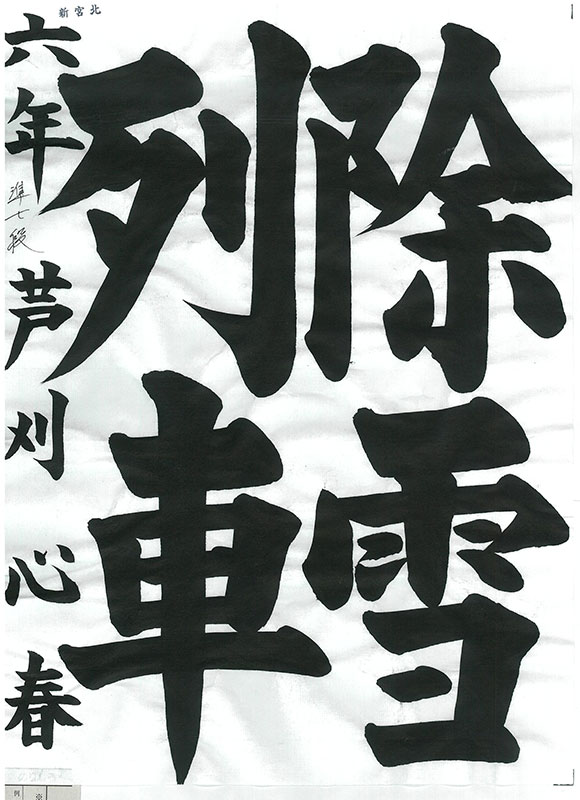 除雪
列車
六年 芦刈心春
準七段
北宮新
例
※